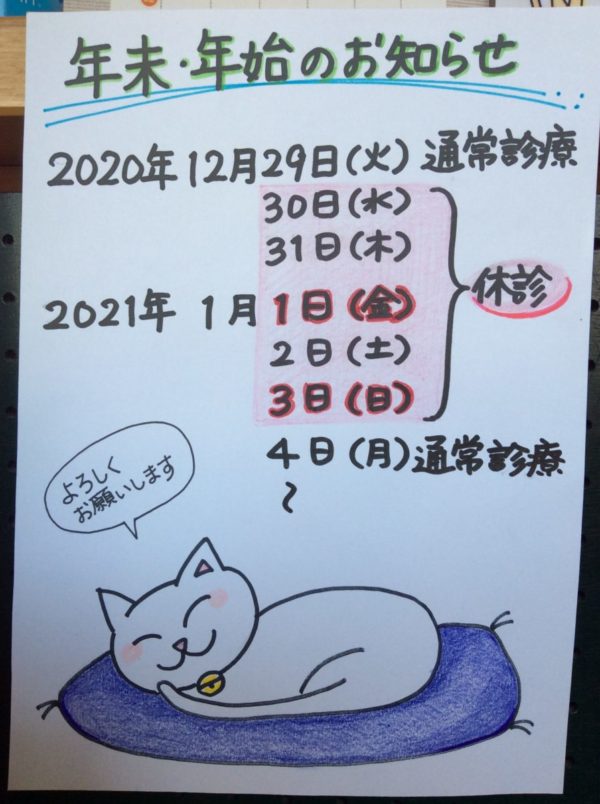 年末・年始のお知らせ
2020年12月29日(火) 通常診療
30日(水)
31日(木)
休診
2021年 1月1日(金)
2日(土)
3日(日)
4日(月)通常診療
〜
よろしく
お願いします